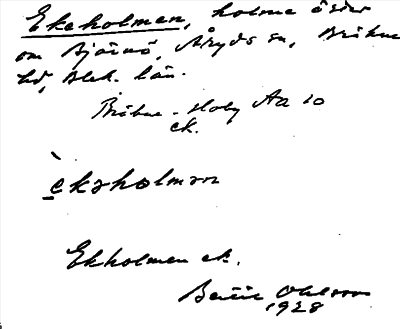 Ekeholmen, holme öster
om Bjärnö, Åryds sn, Bräkne
hd, Blek. län.
Bräkne-Hoby Aa 10
ek.
èkəholmən
Ekholmen ek.
Bertil Ohlsson
1928